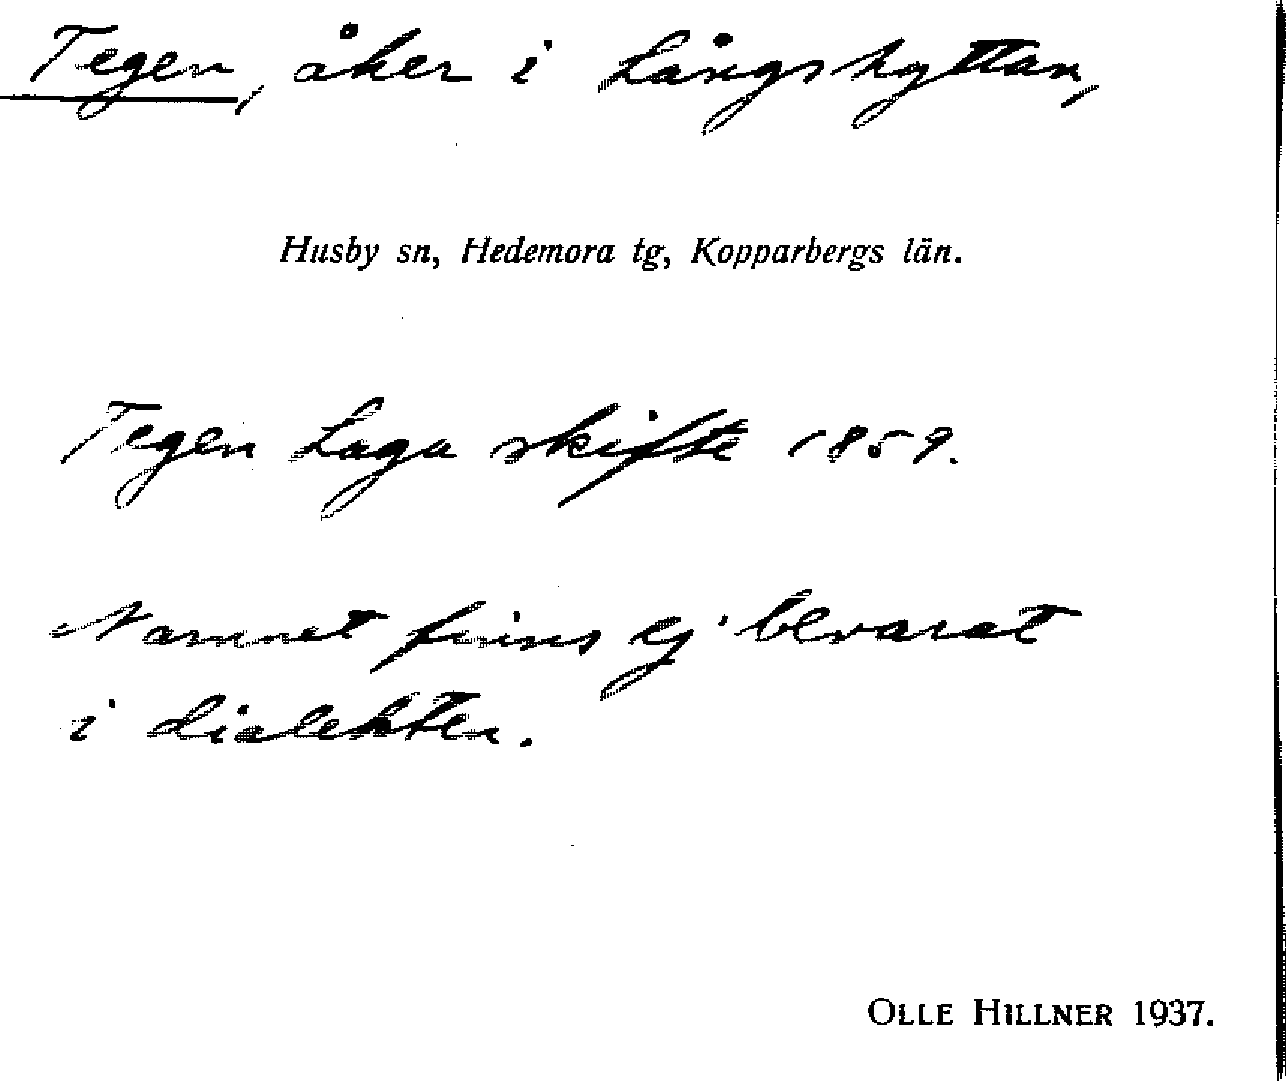 Tegen, åker i Långshyttan,
Husby sn, Hedemora tg, Kopparbergs län.
Tegen Laga skifte 1859.
Namnet finns ej bevarat
i dialekten.
OLLE HILLNER 1937.